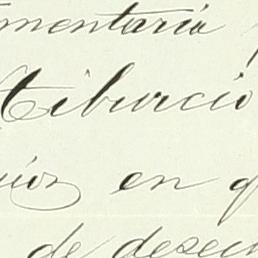 mentaria
Tiburcio
en q
de desech